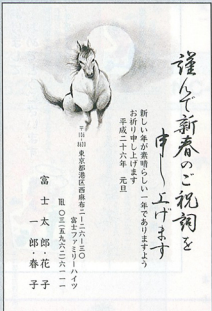 謹んで新春のご祝詞を
申し上げます
新しい年が素晴らしい一年でありますよう
お祈り申し上げます
平成二十六年 元旦
〒106-0031
東京都港区西麻布二-二六-三〇
富士ファミリーハイツ
TEL 〇三-五九六二-六一一一
富士太郎・花子
一郎・春子